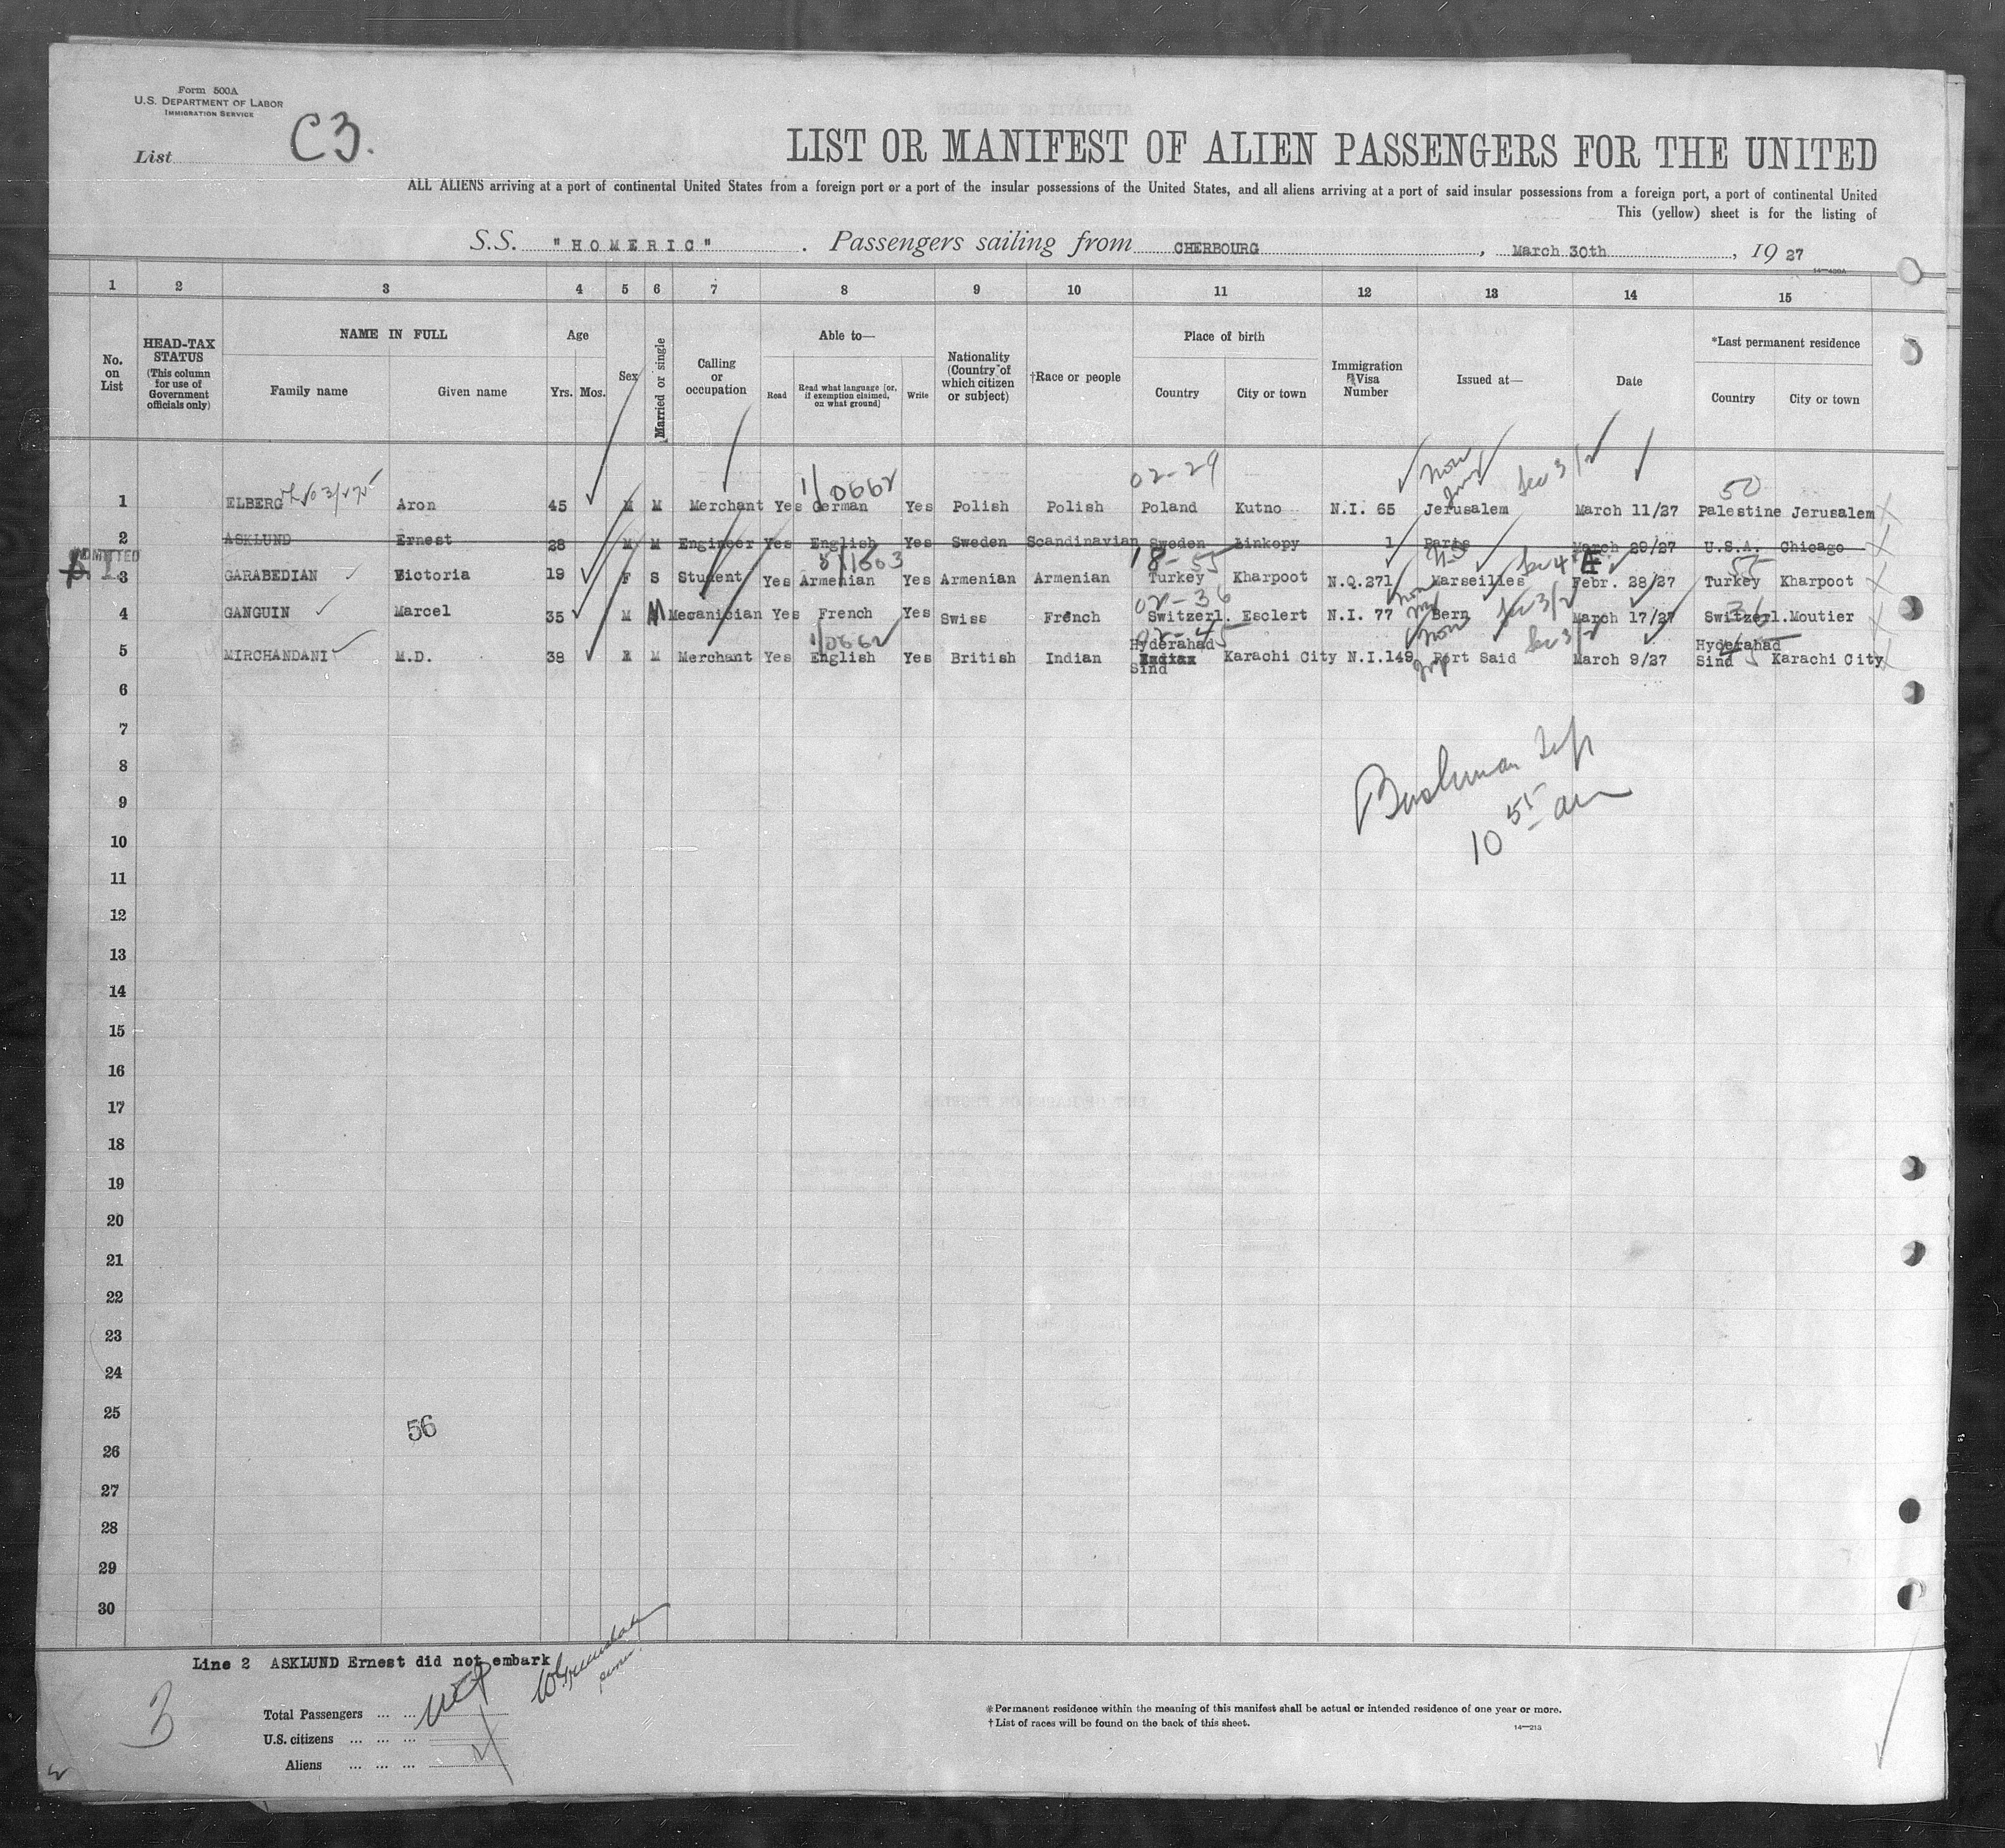 Form 500A
U.S. DEPARTMENT OF LABOR
IMMIGRATION SERVICE
List C3.
LIST OR MANIFEST OF ALIEN PASSENGERS FOR THE UNITED
ALL ALIENS arriving at a port of continental United States from a foreign port or a port of the insular possessions of the United States, and all aliens arriving at a port of said insular possessions from a foreign port, a port of continental United
This (yellow) sheet is for the listing of
S.S. "HOMERIC". Passengers sailing from CHERBOURG, March 30th, 1927
14—400A
1 2 3 4 5 6 7 8 9 10 11 12 13 14 15
No. on List
HEAD-TAX STATUS (This column for use of Government officials only)
NAME IN FULL
Family name
Given name
Age
Yrs. Mos.
Sex
Married or single
Calling or occupation
Able to—
Read
Read what language [or, if exemption claimed, on what ground]
Write
Nationality (Country of which citizen or subject)
†Race or people
Place of birth
Country
City or town
Immigration Visa Number
Issued at—
Date
*Last permanent residence
Country
City or town
1/0662 02-29 Sec 3/2 50
1 ELBERG Aron 45 M M Merchant Yes German Yes Polish Polish Poland Kutno N.I. 65 Jerusalem March 11/27 Palestine Jerusalem
2 ASKLUND Ernest 28 M M Engineer Yes English Yes Sweden Scandinavian Sweden Linkopy 1 Paris March 29/27 U.S.A. Chicago
ADMITTED
18-55 55
3 GARABEDIAN Victoria 19 F S Student Yes Armenian Yes Armenian Armenian Turkey Kharpoot N.Q.271 Marseilles Febr. 28/27 Turkey Kharpoot
02-36 Sec 3/2 36
4 GANGUIN Marcel 35 M M Mecanician Yes French Yes Swiss French Switzerl. Esclert N.I. 77 Bern March 17/27 Switzerl. Moutier
1/0662 02-45 Sec 3/2 45
5 MIRCHANDANI M.D. 38 M M Merchant Yes English Yes British Indian Hyderahad Sind Karachi City N.I.149 Port Said March 9/27 Hyderahad Sind Karachi City
6
7
8
9
10
10 55 am
11
12
13
14
15
16
17
18
19
20
21
22
23
24
25
56
26
27
28
29
30
Line 2 ASKLUND Ernest did not embark
3
Total Passengers ... ...
U.S. citizens ... ... ...
Aliens ... ... ...
*Permanent residence within the meaning of this manifest shall be actual or intended residence of one year or more.
†List of races will be found on the back of this sheet.
14—213